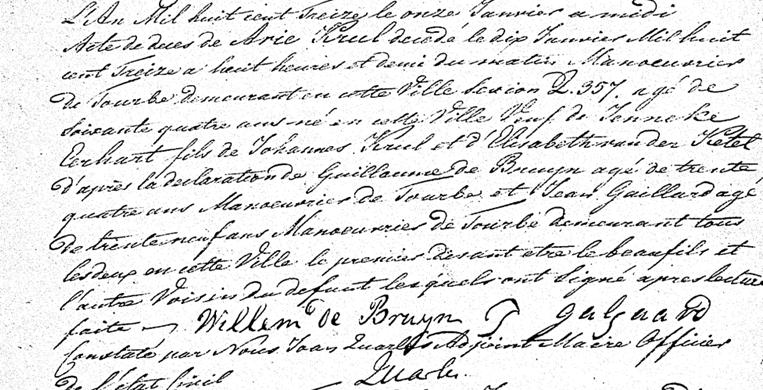 L'An Mil huit cent Treize le onze Janvier a midi
Acte de deces de Arie Krul decede le dix Janvier Mil huit
cent Treize a huit heures et demi du matin Manoeuvrier
de Tourbe demeurant en cette Ville Section 2. 357. agé de
soixante quatre ans né en cette Ville Veuf de Janneke
Eerhart fils de Johannes Krul et d'Elisabeth van der Ketel
d'après la declaration de Guillaume de Bruyn agé de trente
quatre ans Manoeuvries de Tourbe et Jean Gaillard agé
de trente neuf ans Manoeuvries de Tourbe demeurant tous
les deux en cette Ville le premier disant etre le beaufils et
l'autre Voisin du defunt les quels ont Signé apres lecture
faite Willem de Bruyn J galgaard
Constaté par Nous Jean Quarles Adjoint Maire Officier
de l'état Civil Quarles